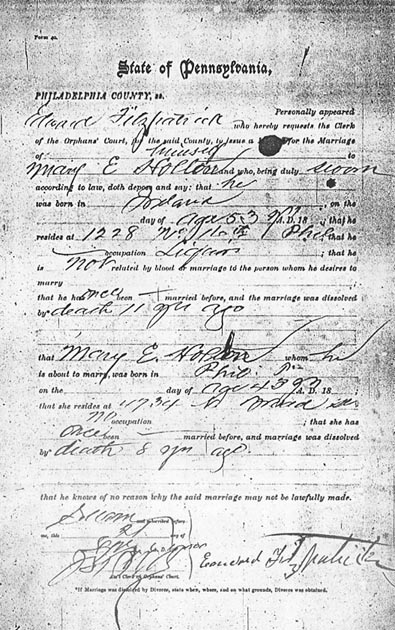 Form 40.
State of Pennsylvania,
PHILADELPHIA COUNTY, ss.
Personally appeared
Edward Fitzpatrick who hereby requests the Clerk
of the Orphans' Court, for the said County, to issue a for the Marriage
of himself to
Mary E Holton and who, being duly sworn
according to law, doth depose and say; that he
was born in Ireland ; on the
day of age 53 yrs A. D. 18 ; that he
resides at 1228 Phila that he
occupation Liquors ; that he
is not related by blood or marriage to the person whom he desires to
marry
that he has once been married before, and the marriage was dissolved
by death 11 yrs ago
that Mary E. Holton whom he
is about to marry, was born in Phil. Pa
on the day of age 43 A. D. 18 ;
that she resides at 1734 N.
no occupation ; that she has
once been married before, and marriage was dissolved
by death 8 yrs ago.
that he knows of no reason why the said marriage may not be lawfully made.
Sworn and subscribed before
me, this day of
A. D.
Edward Fitzpatrick
Ass't Clerk of Orphans' Court.
*If Marriage was dissolved by Divorce, state when, where, and on what grounds, Divorce was obtained.